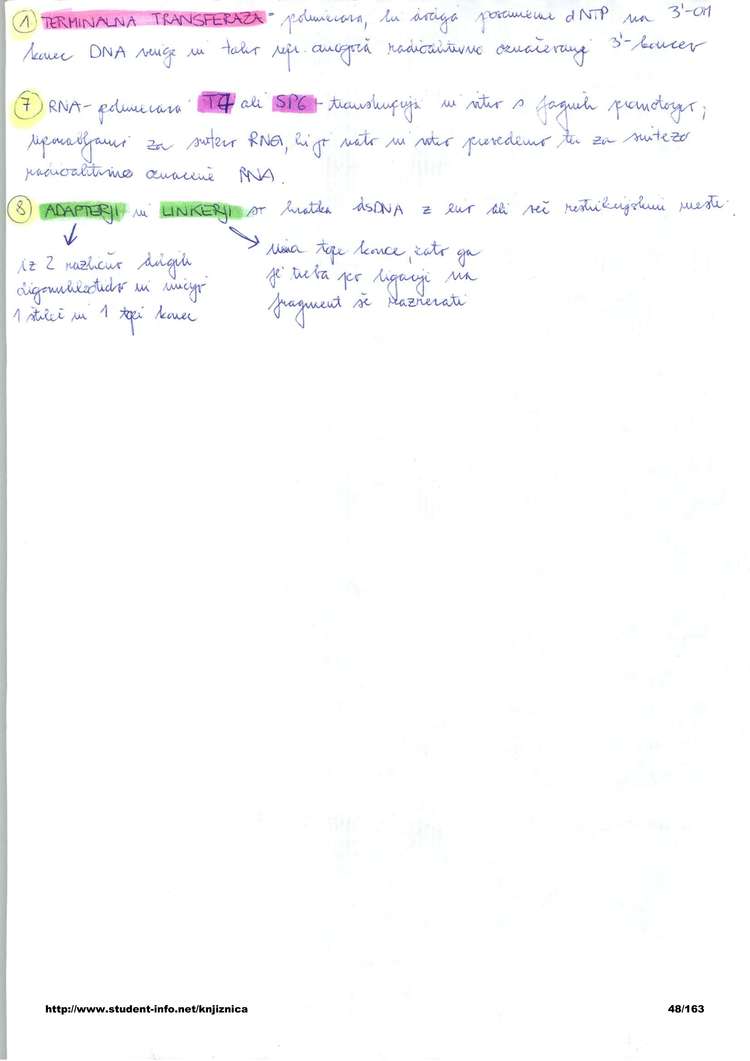 ① TERMINALNA TRANSFERAZA - polimeraza, ki dodaja posamezne dNTP na 3'-OH
konec DNA verige in tako npr. omogoča radioaktivno označevanje 3'-koncev
⑦ RNA-polimeraza T7 ali SP6 - transkripcija in vitro s fagnih promotorjev;
uporabljamo za sintezo RNA, ki jo nato in vitro prevedemo ter za sintezo
radioaktivno označene RNA.
⑧ ADAPTERJI in LINKERJI so kratka dsDNA z eno ali več restrikcijskimi mesti.
iz 2 različno dolgih
oligonukleotidov in imajo
1 štrleč in 1 topi konec
ima tope konce, zato ga
je treba po ligaciji na
fragment še razrezati
http://www.student-info.net/knjiznica
48/163